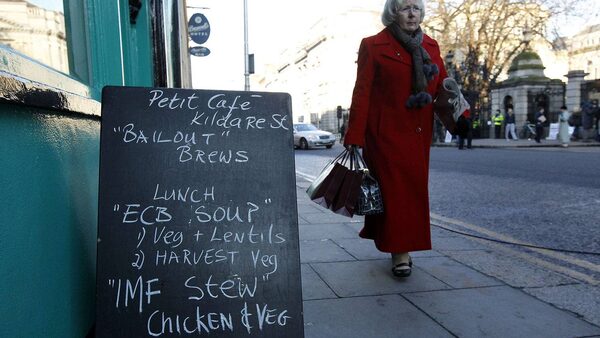 Petit Café
Kildare St
"BAILOUT"
BREWS
LUNCH
"ECB SOUP"
1) Veg + Lentils
2) HARVEST Veg
"IMF STEW"
CHICKEN & VEG
HOTEL